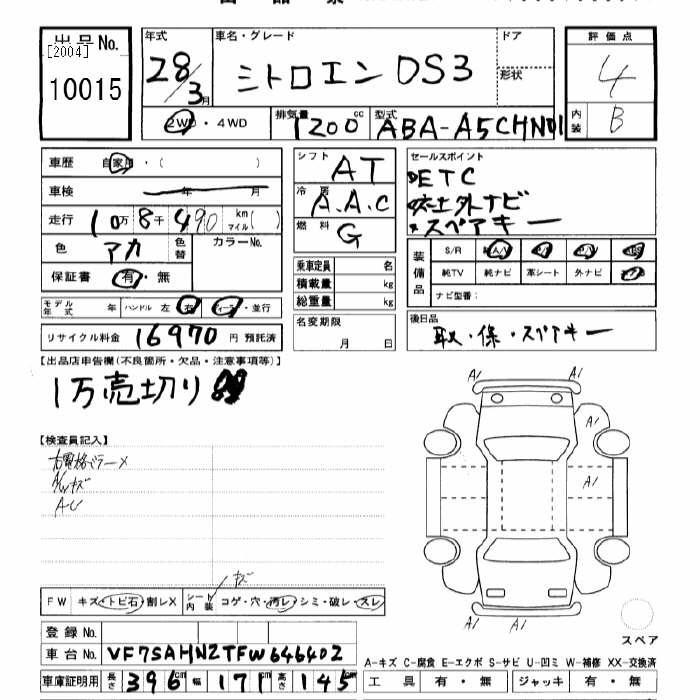 出品No.
[2004]
10015
年式
28/3月
車名・グレード
シトロエン DS3
ドア
形状
評価点
4
内装
B
2WD・4WD
排気量
1200cc
型式
ABA-A5CHN01
車歴 自家用・( )
車検 年 月
走行 10万8千490 km マイル( )
色 アカ 色替 カラーNo.
保証書 有・無
モデル年式 年 ハンドル 左 右 ディーラー・並行
リサイクル料金 16970 円 預託済
シフト AT
冷房 A.A.C
燃料 G
乗車定員 名
積載量 kg
総重量 kg
名変期限
月 日
セールスポイント
ETC
社外ナビ
スペアキー
装備品
S/R A/W P/S P/W ABS
純TV 純ナビ 革シート 外ナビ エアB
ナビ型番:
後日品
取・保・スペアキー
【出品店申告欄(不良箇所・欠品・注意事項等)】
1万売切り
【検査員記入】
A/Wキズ
AU
A1 A1
A1
A1
A1 A1
キズ
FW キズ・トビ石・割レX シート内装 コゲ・穴・汚レ・シミ・破レ・スレ
スペア
登録No.
車台No. VF7SAHNZTFW646402
A-キズ C-腐食 E-エクボ S-サビ U-凹ミ W-補修 XX-交換済
車庫証明用 長さ 396cm 幅 171cm 高さ 145cm
工具 有・無 ジャッキ 有・無